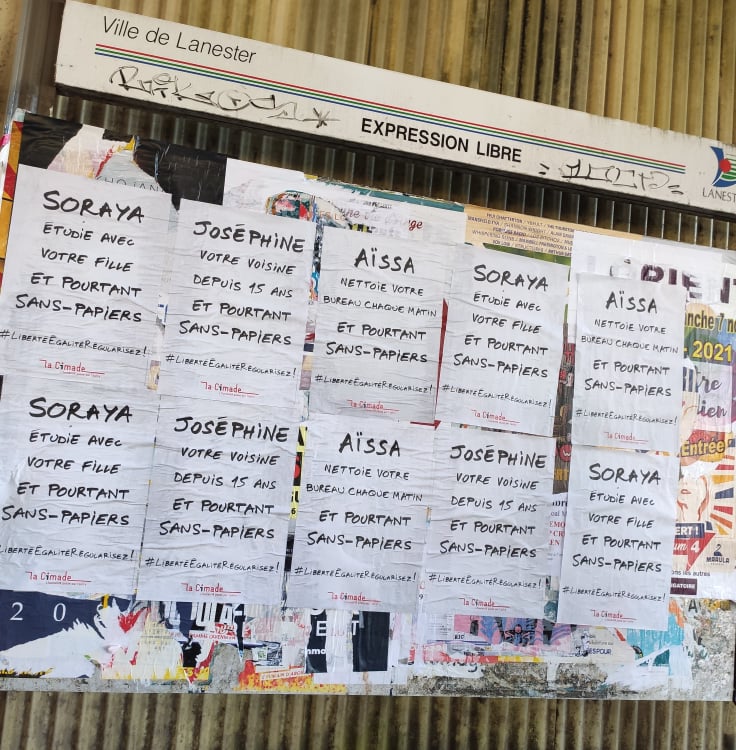 Ville de Lanester
EXPRESSION LIBRE
LANEST
SORAYA
ÉTUDIE AVEC
VOTRE FILLE
ET POURTANT
SANS-PAPIERS
#LIBERTÉÉGALITÉRÉGULARISEZ!
la Cimade
JOSÉPHINE
VOTRE VOISINE
DEPUIS 15 ANS
ET POURTANT
SANS-PAPIERS
#LIBERTÉÉGALITÉRÉGULARISEZ!
la Cimade
AÏSSA
NETTOIE VOTRE
BUREAU CHAQUE MATIN
ET POURTANT
SANS-PAPIERS
#LIBERTÉÉGALITÉRÉGULARISEZ!
la Cimade
SORAYA
ÉTUDIE AVEC
VOTRE FILLE
ET POURTANT
SANS-PAPIERS
#LIBERTÉÉGALITÉRÉGULARISEZ!
la Cimade
AÏSSA
NETTOIE VOTRE
BUREAU CHAQUE MATIN
ET POURTANT
SANS-PAPIERS
#LIBERTÉÉGALITÉRÉGULARISEZ!
la Cimade
SORAYA
ÉTUDIE AVEC
VOTRE FILLE
ET POURTANT
SANS-PAPIERS
#LIBERTÉÉGALITÉRÉGULARISEZ!
la Cimade
JOSÉPHINE
VOTRE VOISINE
DEPUIS 15 ANS
ET POURTANT
SANS-PAPIERS
#LIBERTÉÉGALITÉRÉGULARISEZ!
la Cimade
AÏSSA
NETTOIE VOTRE
BUREAU CHAQUE MATIN
ET POURTANT
SANS-PAPIERS
#LIBERTÉÉGALITÉRÉGULARISEZ!
la Cimade
JOSÉPHINE
VOTRE VOISINE
DEPUIS 15 ANS
ET POURTANT
SANS-PAPIERS
#LIBERTÉÉGALITÉRÉGULARISEZ!
la Cimade
SORAYA
ÉTUDIE AVEC
VOTRE FILLE
ET POURTANT
SANS-PAPIERS
#LIBERTÉÉGALITÉRÉGULARISEZ!
la Cimade
LORIENT
anche 7 no
2021
Entrée
20